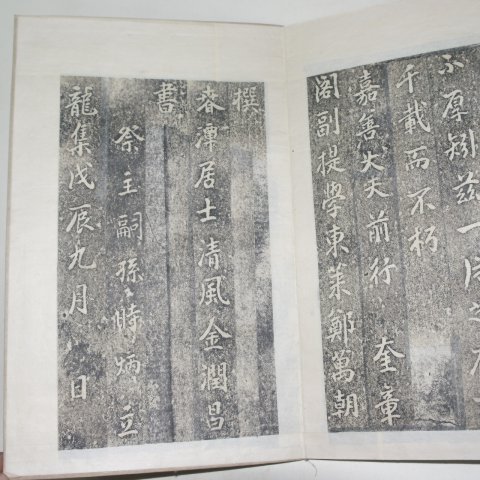 不厚矧玆一
千載而不朽
嘉善大夫前行 奎章
閣副提學東萊鄭萬朝
撰
春潭居士清風金潤昌
書
祭主嗣孫時炳立
龍集戊辰九月 日